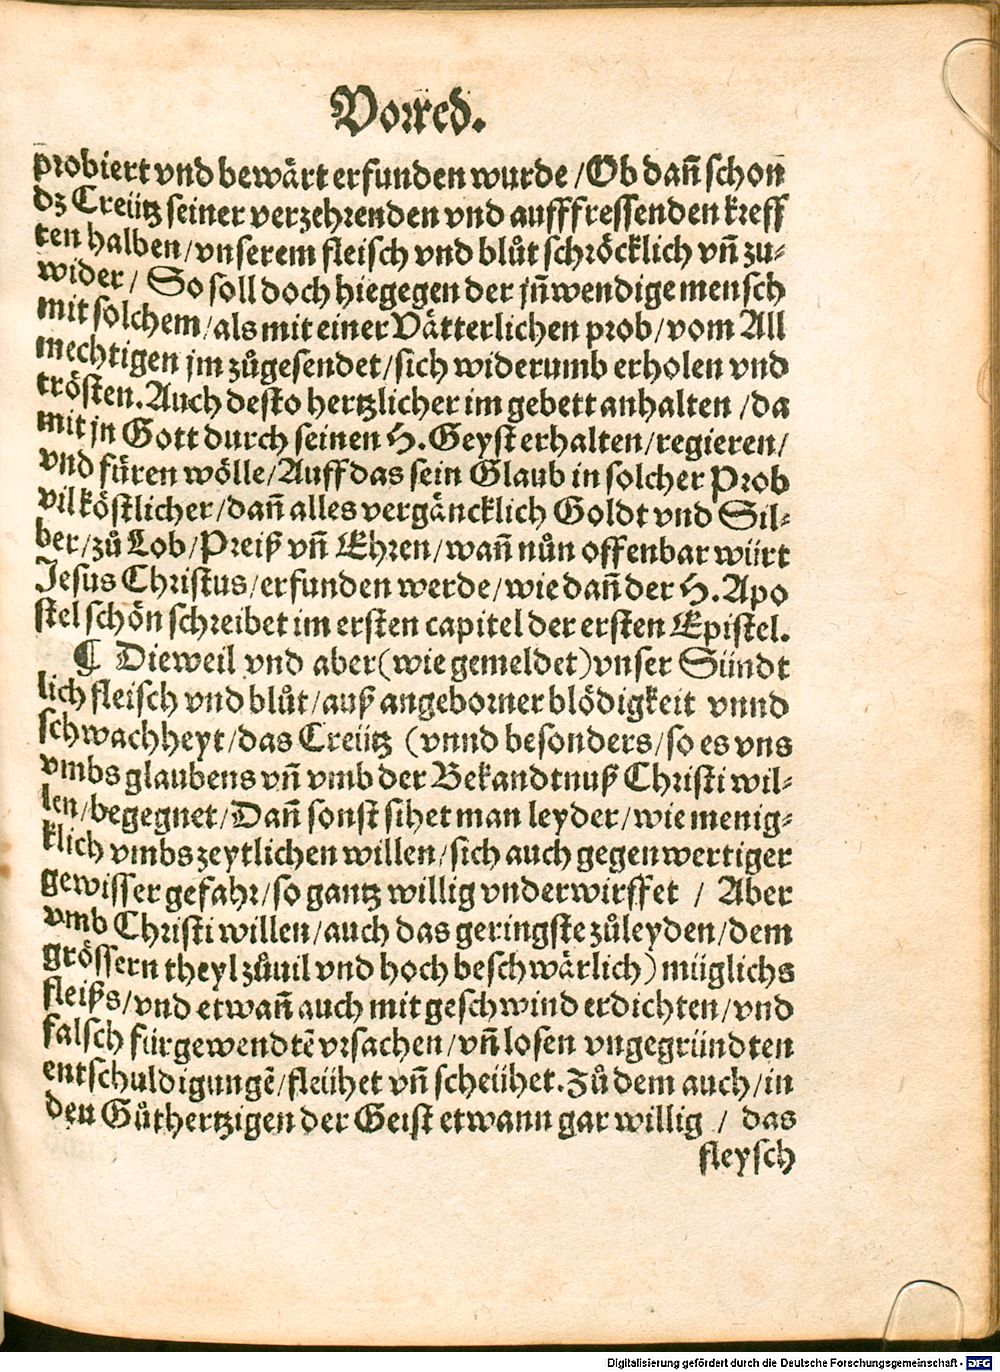 Vorred.
probiert vnd bewärt erfunden wurde / Ob dañ schon
dz Creütz seiner verzehrenden vnd aufffressenden kreff
ten halben / vnserem fleisch vnd blůt schröcklich vñ zu-
wider / So soll doch hiegegen der jñwendige mensch
mit solchem / als mit einer Vätterlichen prob / vom All
mechtigen jm zůgesendet / sich widerumb erholen vnd
trösten. Auch desto hertzlicher im gebett anhalten / da
mit jn Gott durch seinen H. Geyst erhalten / regieren /
vnd füren wölle / Auff das sein Glaub in solcher Prob
vil köstlicher / dañ alles vergäncklich Goldt vnd Sil-
ber / zů Lob / Preiß vñ Ehren / wañ nůn offenbar würt
Jesus Christus / erfunden werde / wie dañ der H. Apo
stel schön schreibet im ersten capitel der ersten Epistel.
¶ Dieweil vnd aber (wie gemeldet) vnser Sündt
lich fleisch vnd blůt / auß angeborner blödigkeit vnnd
schwachheyt / das Creütz (vnnd besonders / so es vns
vmbs glaubens vñ vmb der Bekandtnuß Christi wil-
len / begegnet / Dañ sonst sihet man leyder / wie menig-
klich vmbs zeytlichen willen / sich auch gegenwertiger
gewisser gefahr / so gantz willig vnderwirffet / Aber
vmb Christi willen / auch das geringste zůleyden / dem
grössern theyl zůuil vnd hoch beschwärlich) müglichs
fleißs / vnd etwañ auch mit geschwind erdichten / vnd
falsch fürgewendtẽ vrsachen / vñ losen vngegründten
entschuldigungẽ / fleühet vñ scheühet. Zů dem auch / in
den Gůthertzigen der Geist etwann gar willig / das
fleysch
Digitalisierung gefördert durch die Deutsche Forschungsgemeinschaft - DFG